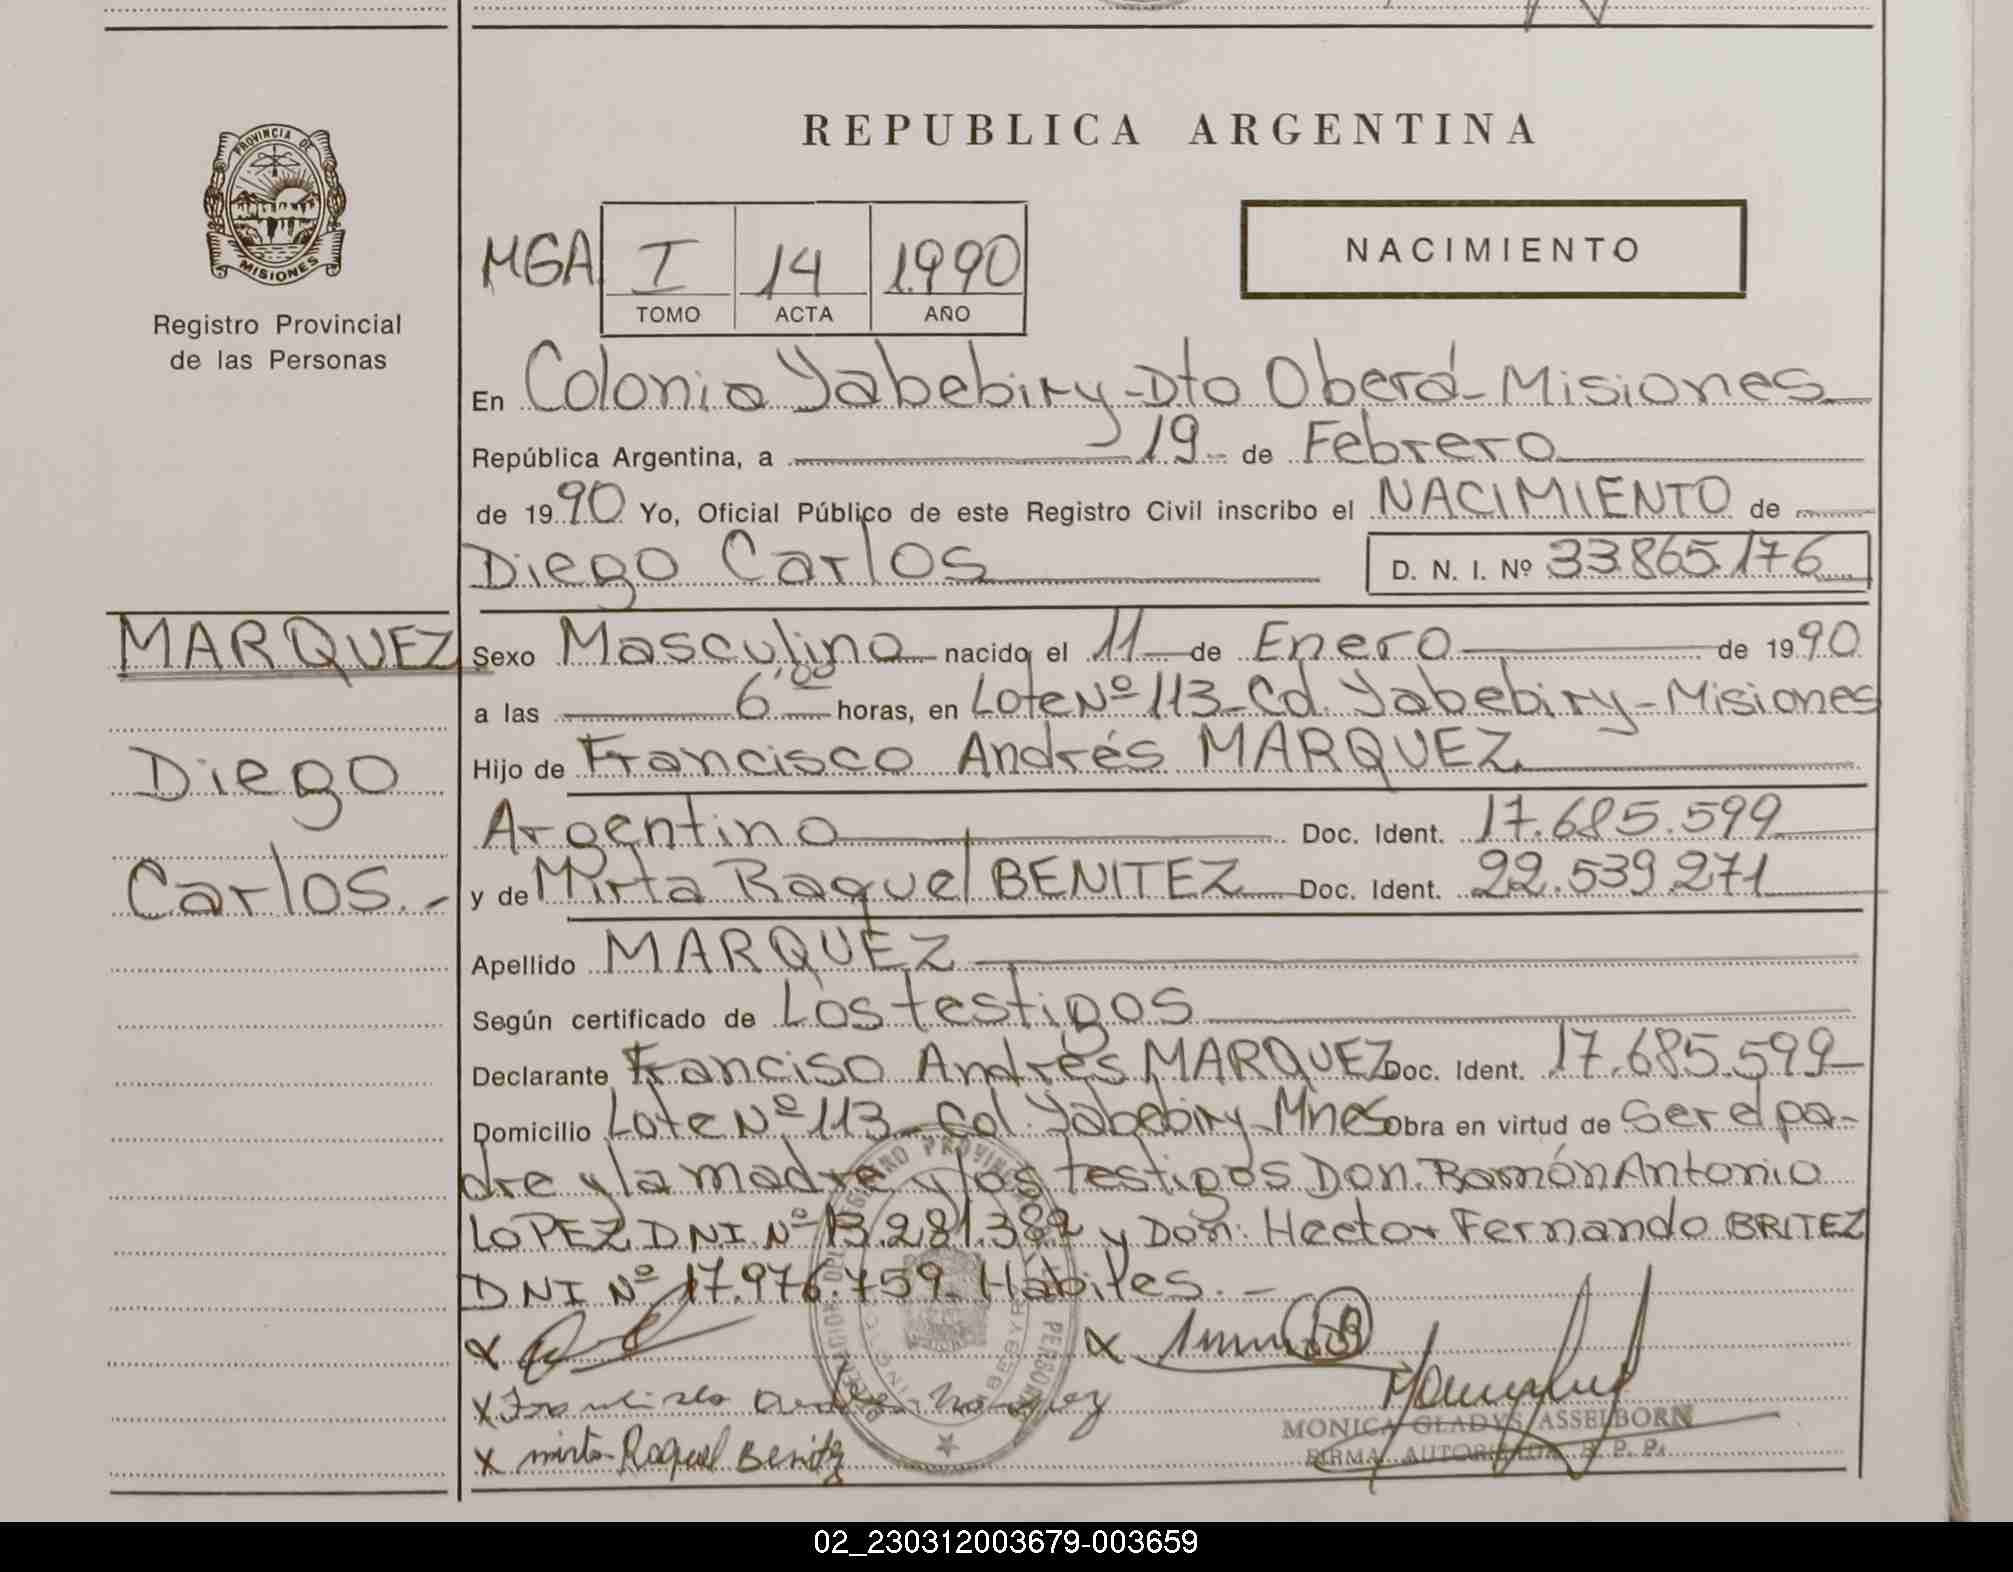 PROVINCIA DE
MISIONES
Registro Provincial
de las Personas
MARQUEZ
Diego
Carlos.-
REPUBLICA ARGENTINA
MGA I 14 1.990
TOMO ACTA AÑO
NACIMIENTO
En Colonia Yabebiry-Dto Oberá-Misiones
República Argentina, a 19 de Febrero
de 19 90 Yo, Oficial Público de este Registro Civil inscribo el NACIMIENTO de
Diego Carlos D. N. I. Nº 33.865.176
Sexo Masculino nacido el 11 de Enero de 19 90
a las 6'00 horas, en Lote Nº 113-Cd. Yabebiry-Misiones
Hijo de Francisco Andrés MARQUEZ
Argentino Doc. Ident. 17.685.599
y de Mirta Raquel BENITEZ Doc. Ident. 22.539.271
Apellido MARQUEZ
Según certificado de Los testigos
Declarante Franciso Andrés MARQUEZ Doc. Ident. 17.685.599
Domicilio Lote Nº 113-Col. Yabebiry-Mnes Obra en virtud de Ser el pa-
dre y la madre y los testigos Don. Ramón Antonio
LOPEZ DNI Nº 13.281.382 y Don: Hector Fernando BRITEZ
DNI Nº 17.976.759 Hábiles.-
x x
x Francisco Andres Marquez
x mirta Raquel Benitz
MONICA GLADYS ASSELBORN
FIRMA AUTORIZADA R. P. P.
02_230312003679-003659